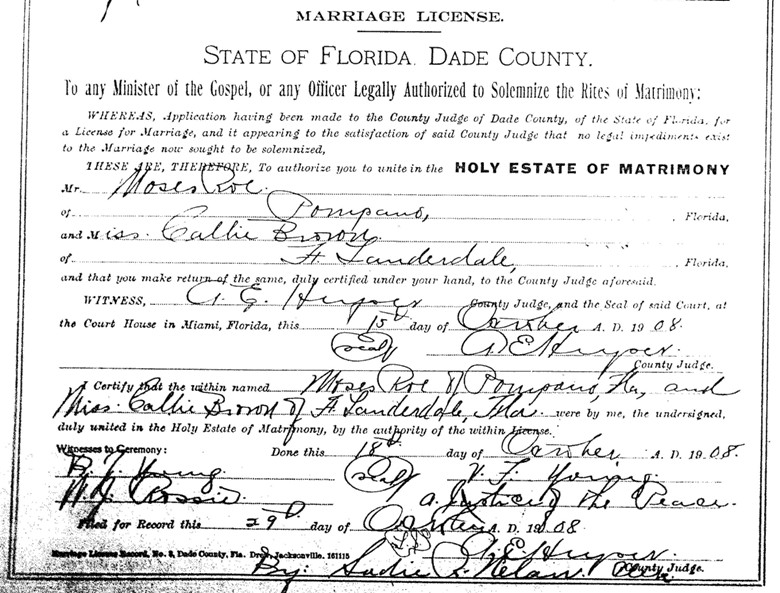 MARRIAGE LICENSE.
STATE OF FLORIDA. DADE COUNTY.
To any Minister of the Gospel, or any Officer Legally Authorized to Solemnize the Rites of Matrimony:
WHEREAS, Application having been made to the County Judge of Dade County, of the State of Florida, for
a License for Marriage, and it appearing to the satisfaction of said County Judge that no legal impediments exist
to the Marriage now sought to be solemnized,
THESE ARE, THEREFORE, To authorize you to unite in the HOLY ESTATE OF MATRIMONY
Mr. Moses Roe.
of Pompano, Florida,
and Miss. Callie Brown
of Ft Lauderdale, Florida,
and that you make return of the same, duly certified under your hand, to the County Judge aforesaid.
WITNESS, A. E. Heyser County Judge, and the Seal of said Court, at
the Court House in Miami, Florida, this 15th day of October A. D. 1908.
(Seal) A. E. Heyser.
County Judge.
I Certify that the within named Moses Roe of Pompano, Fla, and
Miss. Callie Brown of Ft Lauderdale, Fla were by me, the undersigned,
duly united in the Holy Estate of Matrimony, by the authority of the within License.
Witnesses to Ceremony: Done this 18th day of October A. D. 1908.
Young. (Seal) V. T. Young.
a Justice of the Peace.
Filed for Record this 29th day of October A. D. 1908
A. E. Heyser.
Marriage License Record, No. 3, Dade County, Fla. Drew, Jacksonville, 161115
County Judge.
By: Sadie